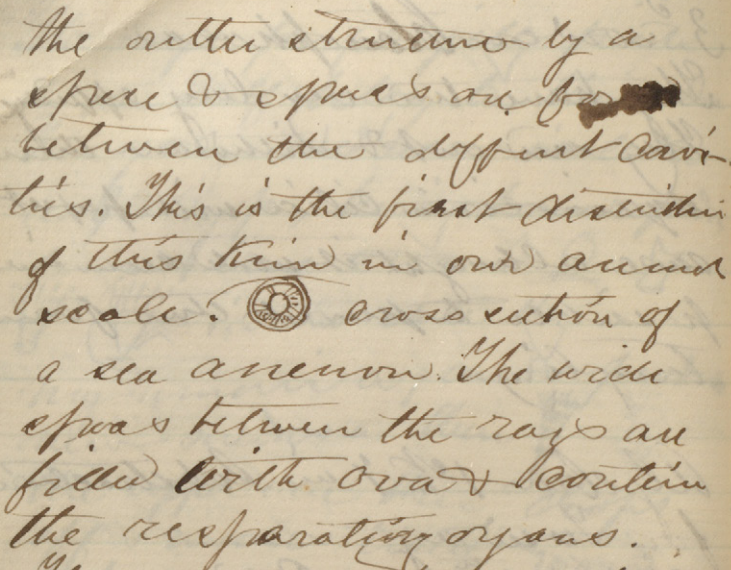 the outter structure by a
space & spaces are for
between the different cavi-
ties. This is the first distinction
of this kind in our animal
scale. cross section of
a sea anemon. The wide
spaces between the rays are
filled with ova & contain
the resparatiory organs.